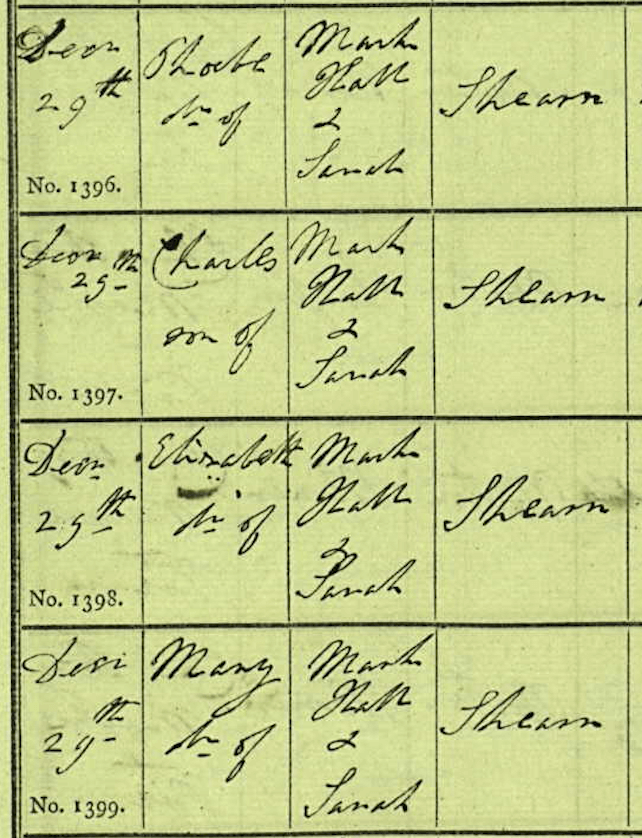 Decr
29th
No. 1396.
Phoebe
dr of
Mark
Hall
&
Sarah
Shearn
Decr
29th
No. 1397.
Charles
son of
Mark
Hall
&
Sarah
Shearn
Decr
29th
No. 1398.
Elizabeth
dr of
Mark
Hall
&
Sarah
Shearn
Decr
29th
No. 1399.
Mary
dr of
Mark
Hall
&
Sarah
Shearn